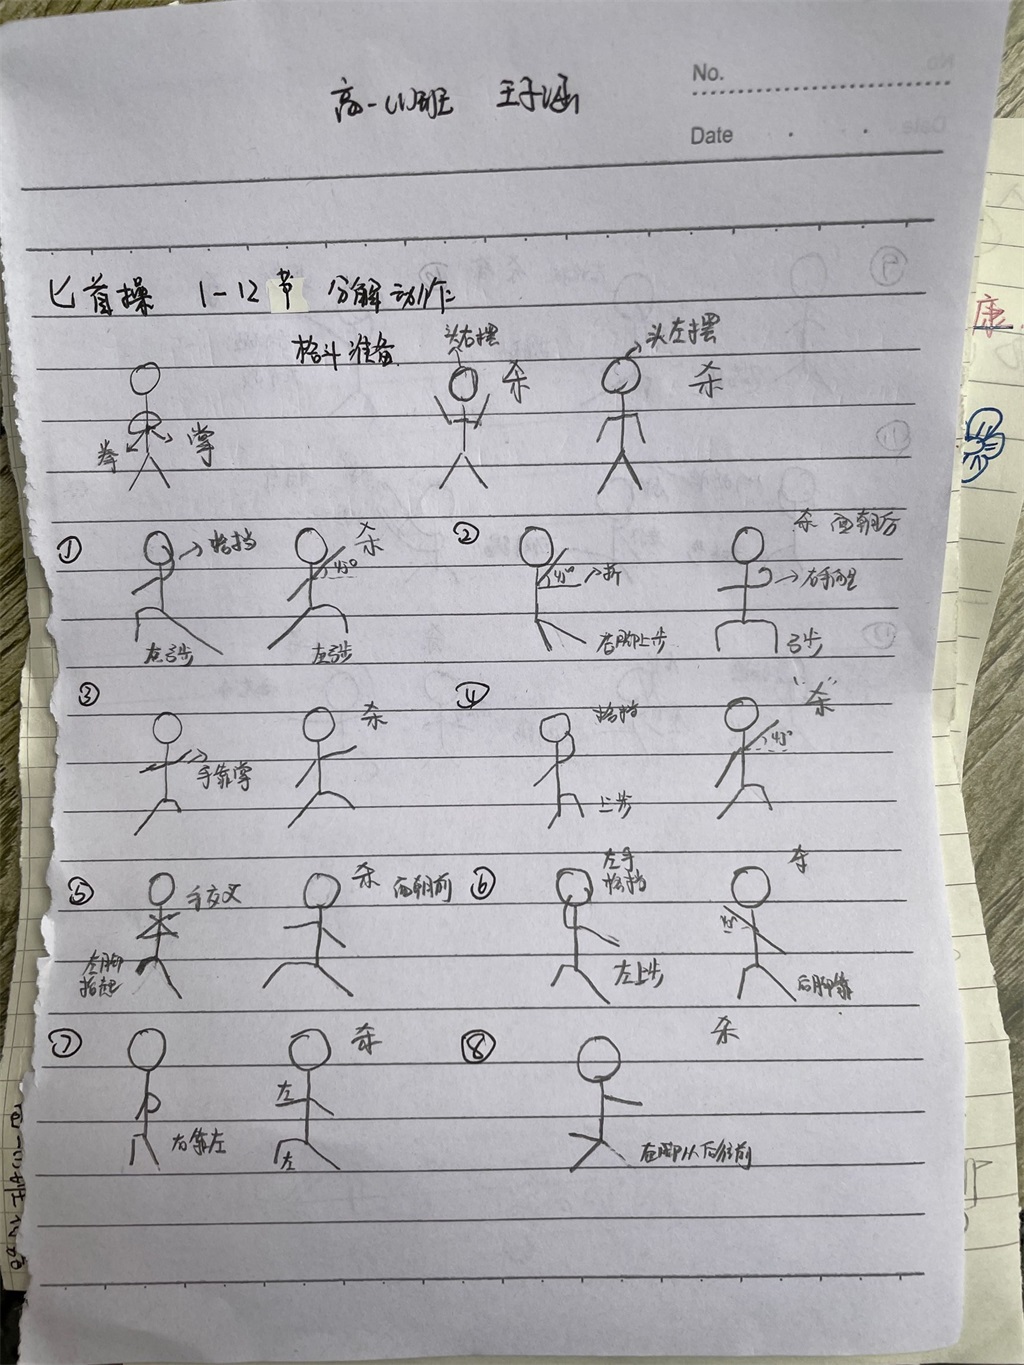 No.
高一(1)班 王子涵
Date
匕首操 1-12节 分解动作
格斗准备 头右摆 杀 头左摆 杀
拳 掌
① 格挡 杀 45° ② 45° 折 杀 面朝后 右手向里
左弓步 左弓步 右脚上步 弓步
③ 手靠掌 杀 ④ 格挡 上步 "杀" 45°
⑤ 手交叉 杀 面朝前 ⑥ 左手格挡 杀
左脚抬起 左上步 右脚靠
⑦ 杀 ⑧ 杀
右靠左 左 左 右脚从后往前
康